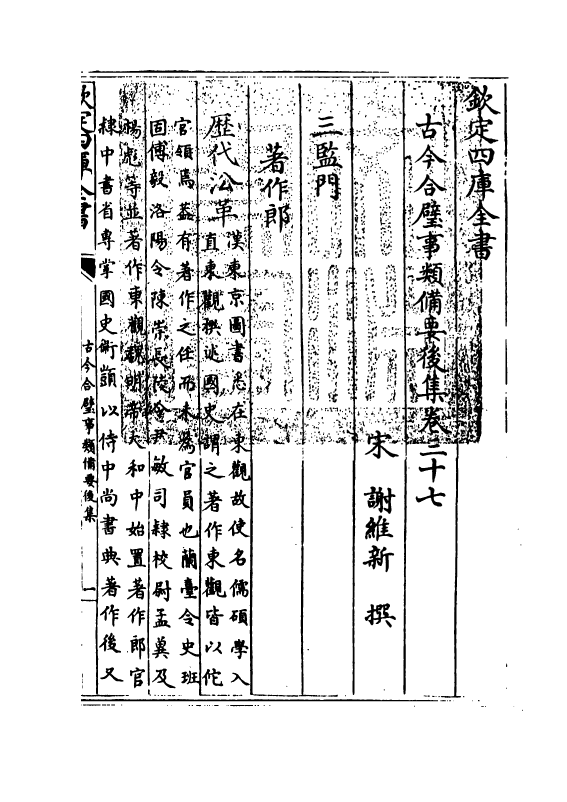 欽定四庫全書
古今合璧事類備要後集卷三十七
宋 謝維新 撰
三監門
著作郎
歷代沿革
漢東京圖書悉在東觀故使名儒碩學入
直東觀撰述國史謂之著作東觀皆以佗
官領焉蓋有著作之任而未為官員也蘭臺令史班
固傅毅洛陽令陳崇長陵令尹敏司隸校尉孟冀及
楊彪等並著作東觀魏明帝太和中始置著作郎官
隸中書省專掌國史衛顗以侍中尚書典著作後又
欽定四庫全書
古今合璧事類備要後集
一